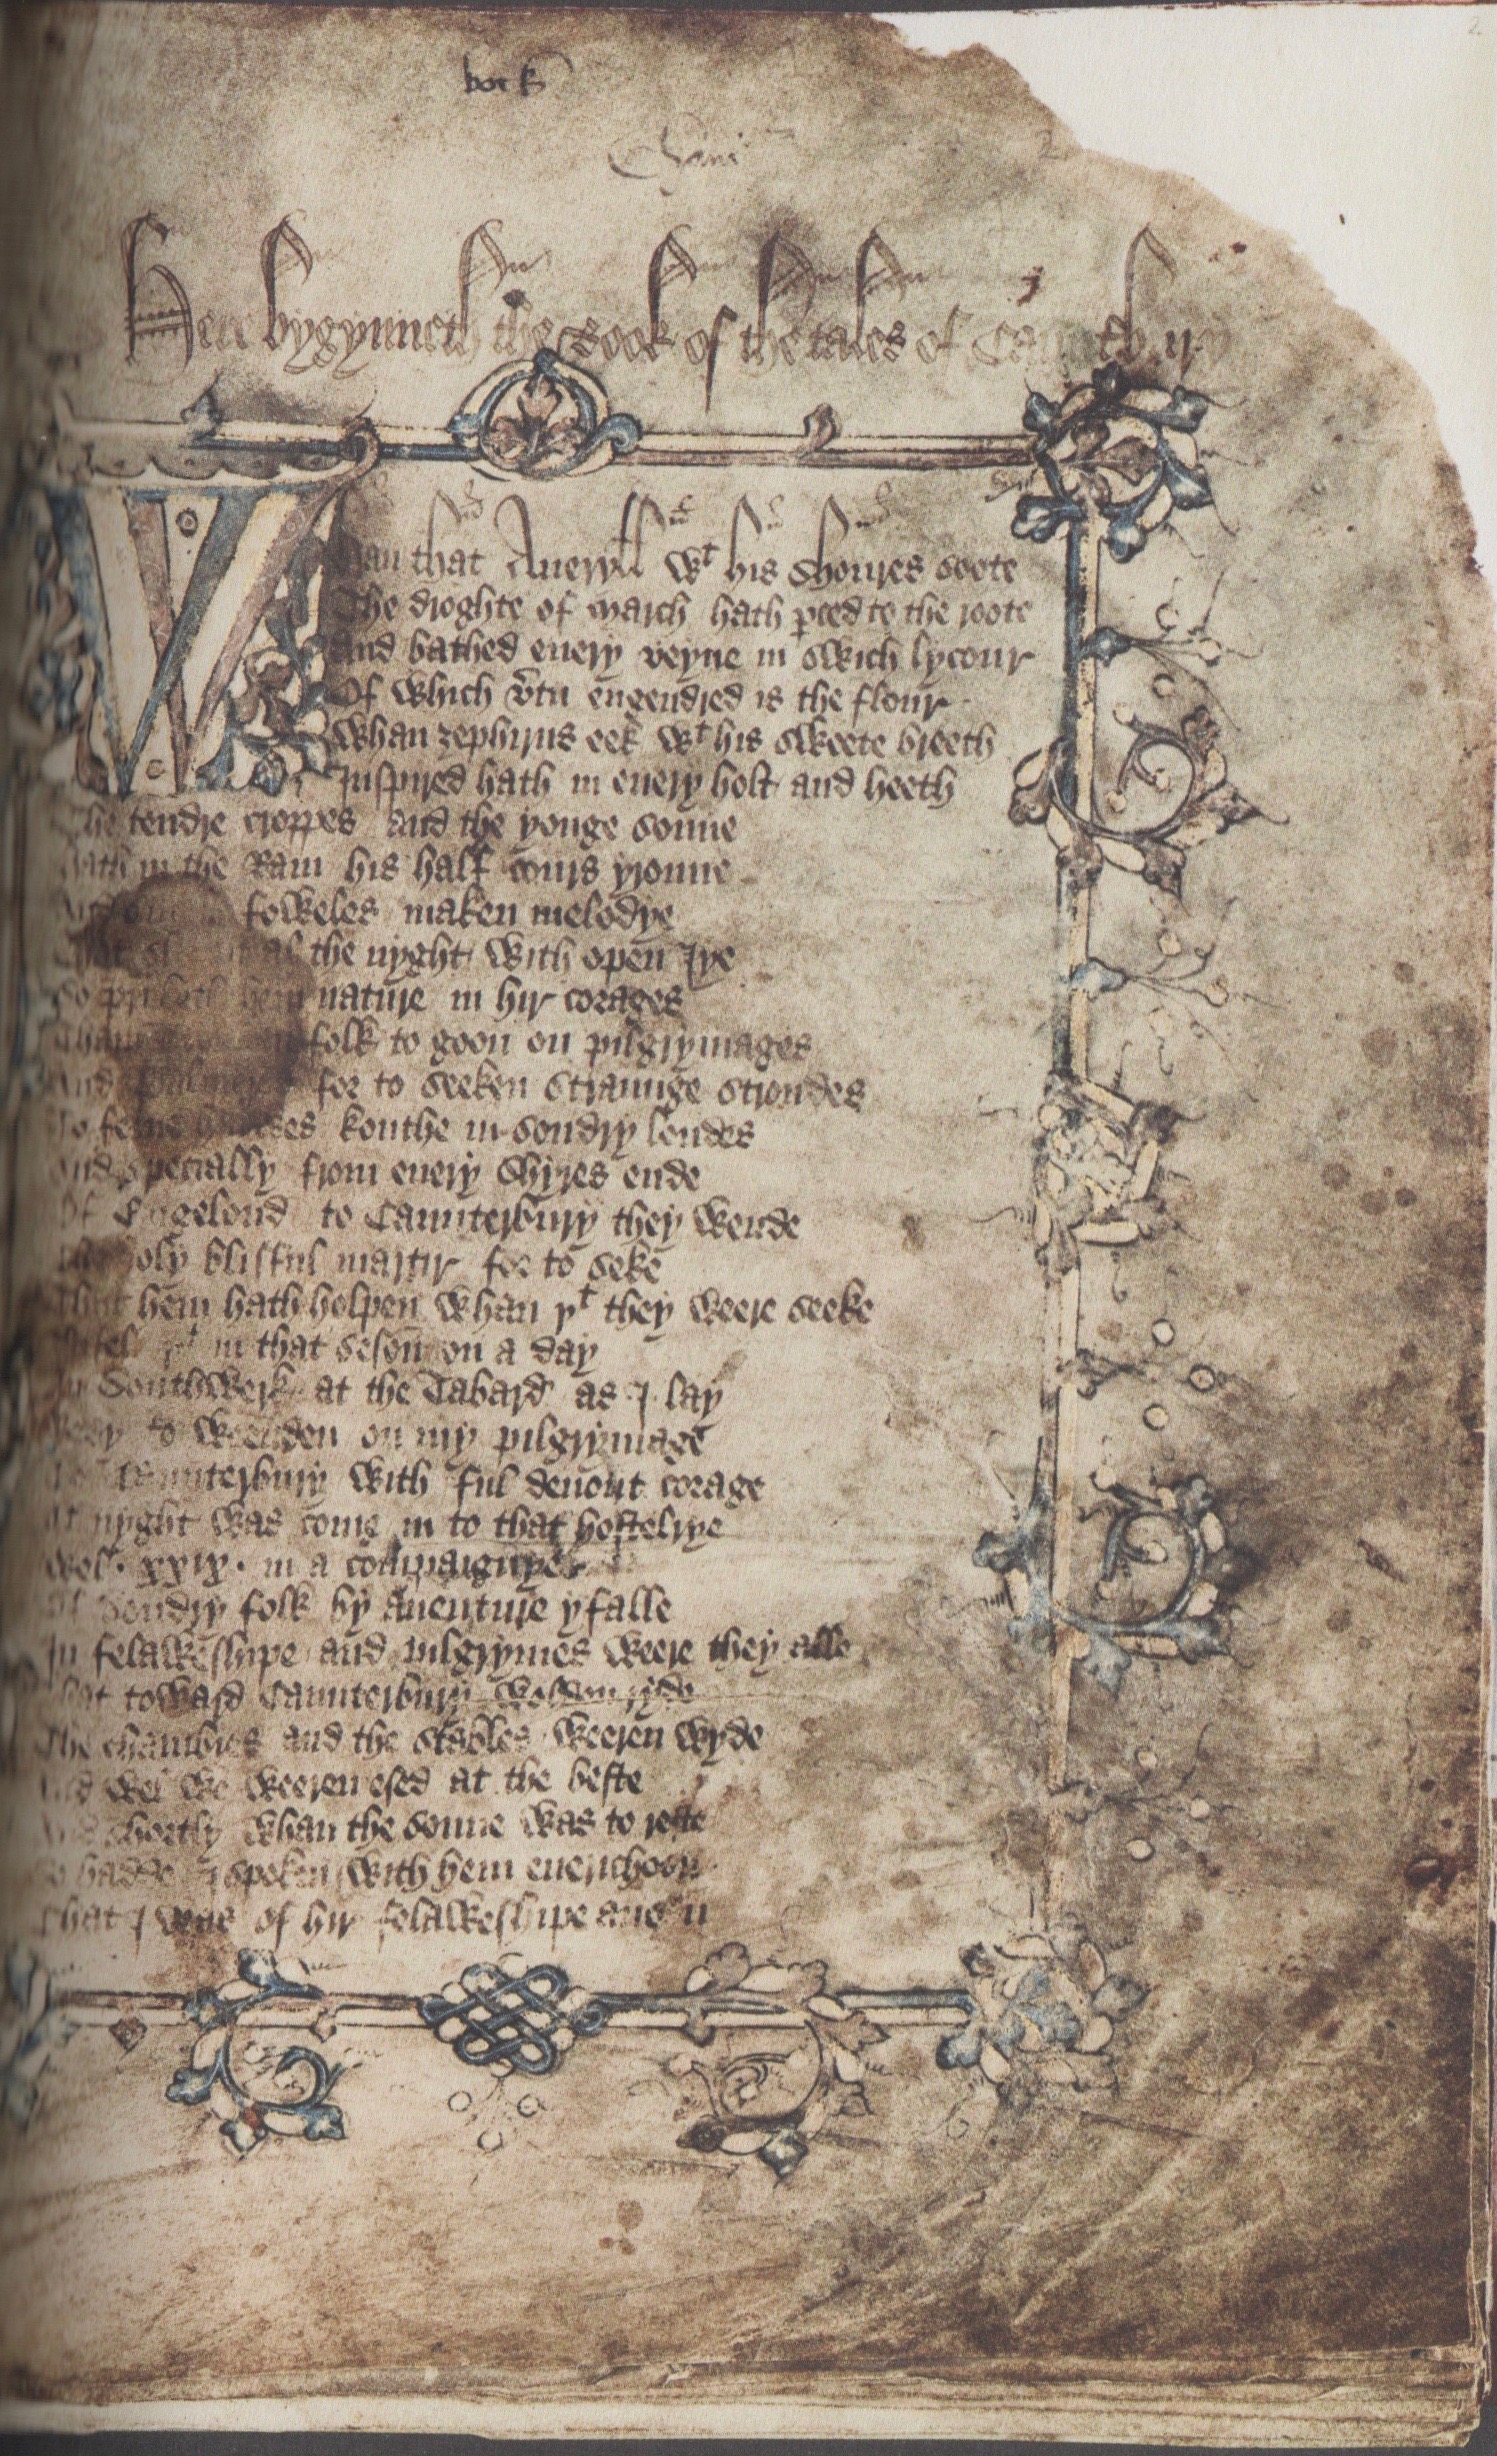 Here bygynneth the Book of the tales of Caunterbury
Whan that Aueryll wt his shoures soote
The droghte of march hath pced to the roote
And bathed euery veyne in swich lycour
Of which vtu engendred is the flour
Whan zephirus eek wt his sweete breeth
Inspired hath in euery holt and heeth
The tendre croppes and the yonge sonne
hath in the Ram his half cours yronne
And foweles maken melodye
al the nyght with open Iye
So hem nature in hir corages
folk to goon on pilgrymages
And for to seeken straunge strondes
To kouthe in sondry londes
And specially from euery shyres ende
Of Engelond to Caunterbury they wende
The holy blisful martir for to seke
That hem hath holpen whan yt they weere seeke
in that seson on a day
In Southwerk at the Tabard as I lay
Redy to weenden on my pilgrymage
To Caunterbury with ful deuout corage
At nyght was come in to that hostelrye
wel · xxix · in a compaignye
Of sondry folk by auenture yfalle
In felaweshipe and pilgrymes weere they alle
That toward Caunterbury wolden ryde
The chambres and the stables weeren wyde
And wel we weeren esed at the beste
And shortly whan the sonne was to reste
So hadde I spoken with hem euerichoon
That I was of hir felaweshipe anoon